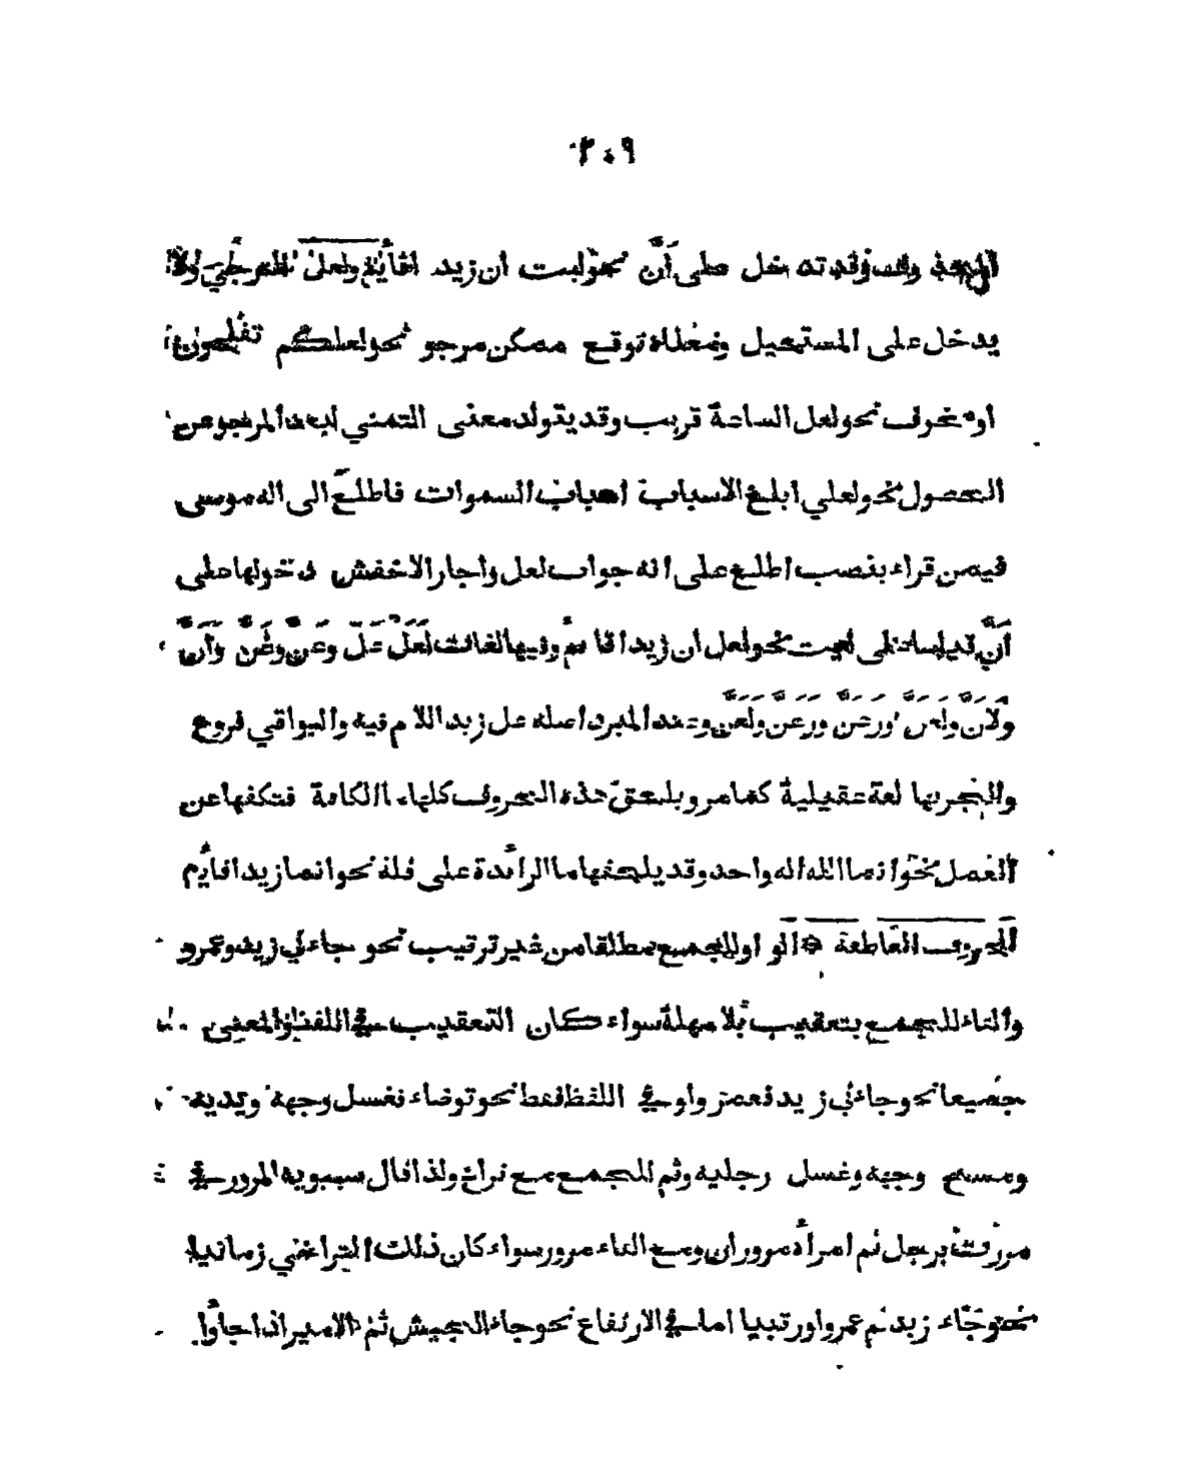 ٢٠٩
وقد تدخل على أنَّ نحو ليت ان زيد اقائم ولعل للترجي ولا
يدخل على المستحيل ومعناه توقع ممكن مرجو نحو لعلكم تفلحون
او مخوف نحو لعل الساعة قريب وقد يتولد معنى التمني لبعد المرجو عن
الحصول نحو لعلي ابلغ الاسباب اسباب السموات فاطلع الى اله موسى
فيمن قراء بنصب اطلع على انه جواب لعل واجاز الاخفش دخولها على
أنَّ قياسا على ليت نحو لعل ان زيدا قائم وفيها لغات لَعَلَّ عَلَّ وعَنَّ وغَنَّ وأنَّ
ولَأنَّ ولعنَّ ورعنَّ ورغنَّ ولغنَّ وعند المبرد اصله عل زيد اللام فيه والبواقي فروع
والجر بها لغة عقيلية كما مر ويلحق هذه الحروف كلها ما الكافة فتكفها عن
العمل نحو انما الله اله واحد وقد يلحقها ما الزائدة على قلة نحو انما زيدا قائم
الحروف العاطفة الواو للجمع مطلقا من غير ترتيب نحو جاءني زيد وعمرو
والفاء للجمع بتعقيب بلا مهلة سواء كان التعقيب في اللفظ والمعنى
جميعا نحو جاءني زيد فعمرو او في اللفظ فقط نحو توضاء فغسل وجهه ويديه
ومسح وجهه وغسل رجليه وثم للجمع مع تراخ ولذا قال سيبويه المرور في
مررت برجل ثم امرأة مروران ومع الفاء مرور سواء كان ذلك التراخي زمانيا
نحو جاء زيد ثم عمرو او رتبيا اما في الارتفاع نحو جاء الجيش ثم الامير اذا جاؤا